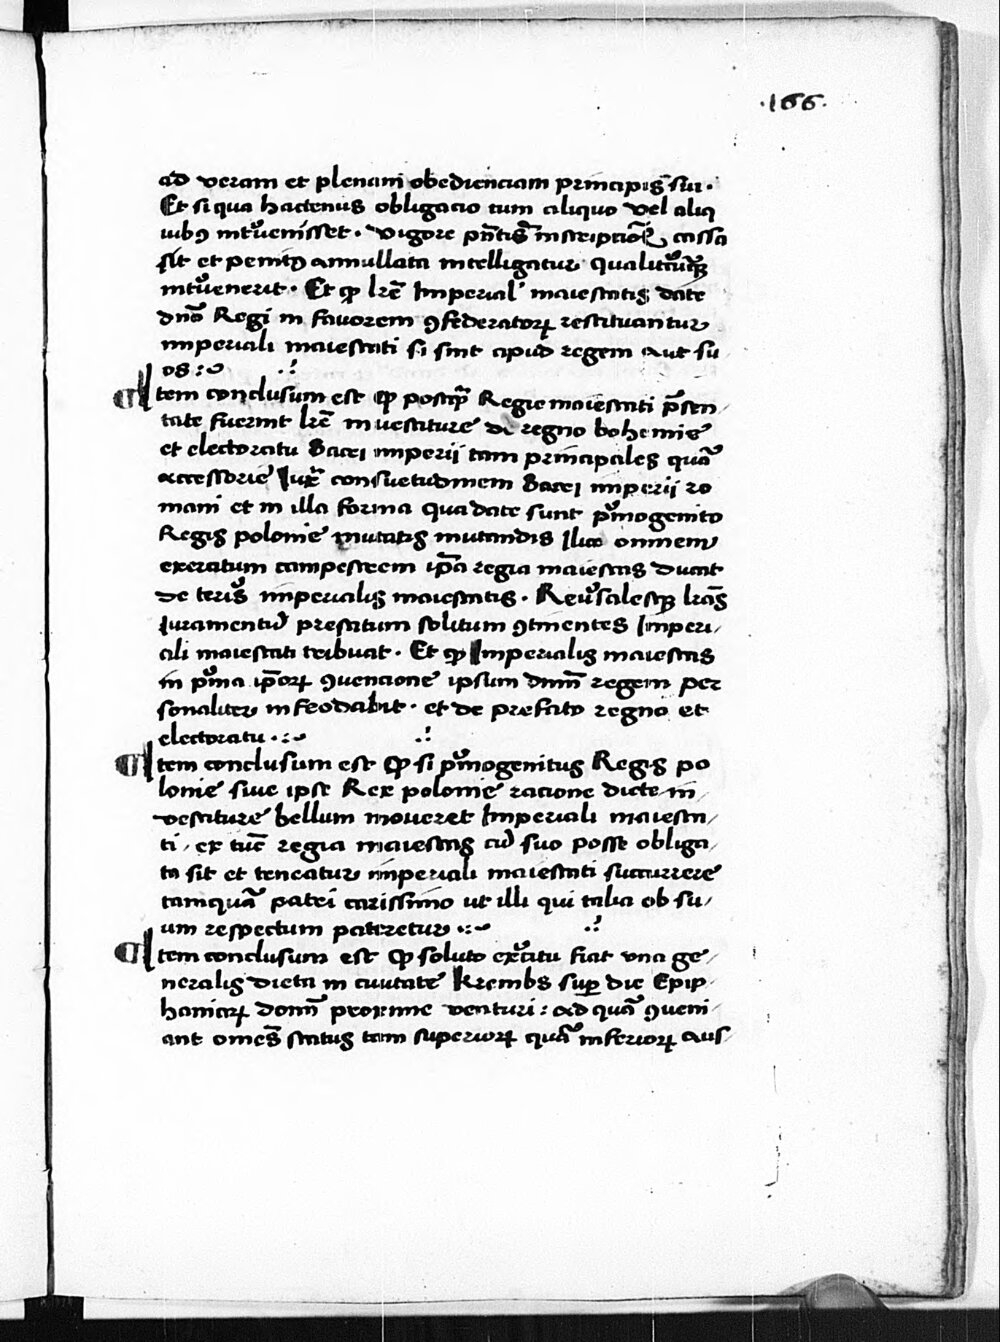 ·166·
ad veram et plenam obedienciam principis sui·
Et si qua hactenus obligacio cum aliquo vel aliq
uibꝯ intꝰvenisset· vigore pn̄tis inscripcioꝝ cassa
sit et penitꝯ annullata intelligatur qualitcūqꝫ
intꝰvenerit· Et ꝙ lr̄e Imperial' maiestatis date
dn̄o Regi in favorem ꝯfederatoꝝ restituantur
imperiali maiestati si sint apud regem aut su
os :~
Item conclusum est ꝙ postq̄ꝫ Regie maiestati p̄sen⸗
tate fuerint lr̄e investiture de regno bohemie
et electoratu Sacri imperii tam principales quā
accessorie Iux̄ consuetudinem Sacri imperii ro
mani et in illa forma qua date sunt pͥmogenito
Regis polonie mutatis mutandis Ilico omnem
exercitum campestrem ip̄a regia maiestas ducat
de terͥs imperialis maiestatis· Reuͥsalesqꝫ lrās
Iuramentū prestitum solitum ꝯtinentes Imperi⸗
ali maiestati tribuat· Et ꝙ Imperialis maiestas
in pͥma ip̄oꝝ ꝯvencione ipsum dn̄m regem per
sonaliter infeodabit· et de prefato regno et
electoratu ·:~
Item conclusum est ꝙ si pͥmogenitus Regis po
lonie sive ipse Rex polonie racione dicte in⸗
vestiture bellum moveret Imperiali maiesta⸗
ti⸗ ex tūc regia maiestas ad suo posse obliga⸗
ta sit et teneatur imperiali maiestati succurrere
tamquā patri carissimo ut illi qui talia ob su⸗
um respectum pateretur ·:~
Item conclusum est ꝙ soluto exꝰcitu fiat una ge⸗
neralis dieta in civitate krembs suꝑ die Epip⸗
haniaꝝ domī proxime venturi : ad quā ꝯveni⸗
ant omēs status tam superioꝝ quā inferioꝝ aus⸗